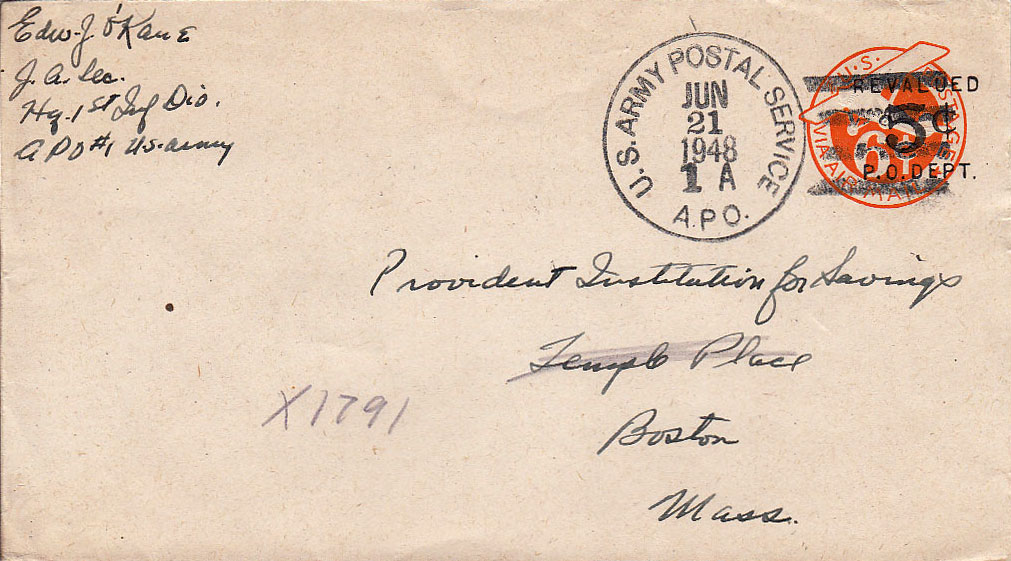 Edw. J. O'Kane
J. A. Sec.
Hq. 1st Inf Div.
APO #1 US. Army
U.S. ARMY POSTAL SERVICE
JUN
21
1948
1 A
A.P.O.
U.S. POSTAGE
VIA AIR MAIL
6¢
REVALUED
5¢
P.O. DEPT.
Provident Institution for Savings
Temple Place
Boston
Mass.
X1791